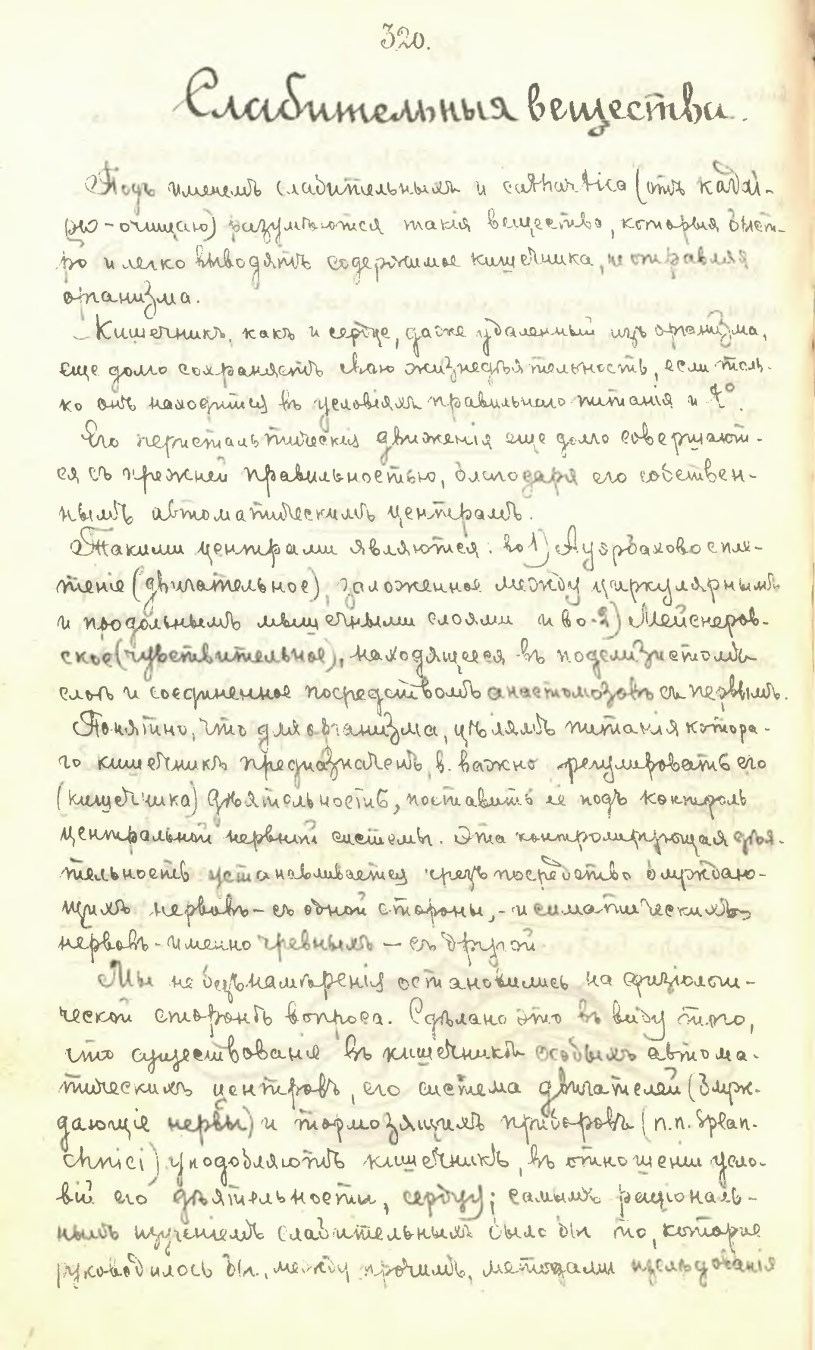 320.
Слабительныя вещества.
Подъ именемъ слабительныхъ и cathartica (отъ καθαί-
ρω - очищаю) разумѣются такія вещества, которыя быст-
ро и легко выводятъ содержимое кишечника, не отравляя
организма.
Кишечникъ, какъ и сердце, даже удаленный изъ организма,
еще долго сохраняетъ свою жизнедѣятельность, если толь-
ко онъ находится въ условіяхъ правильнаго питанія и t°.
Его перистальтическія движенія еще долго совершают-
ся съ прежней правильностью, благодаря его собствен-
нымъ автоматическимъ центрамъ.
Такими центрами являются: во 1) Ауэрбахово спле-
теніе (двигательное), заложенное между циркулярнымъ
и продольнымъ мышечными слоями и во-2) Мейснеров-
ское (чувствительное), находящееся въ подслизистомъ
слоѣ и соединенное посредствомъ анастомозовъ съ первымъ.
Понятно, что для организма, цѣлямъ питанія котора-
го кишечникъ предназначенъ, в. важно регулировать его
(кишечника) дѣятельность, поставить ее подъ контроль
центральной нервной системы. Эта контролирующая дѣя-
тельность устанавливается чрезъ посредство блуждаю-
щихъ нервовъ - съ одной стороны, - и симатическихъ
нервовъ - именно чревныхъ - съ другой
Мы не безъ намѣренія остановились на физіологи-
ческой сторонѣ вопроса. Сдѣлано это въ виду того,
что существованіе въ кишечникѣ особыхъ автома-
тическихъ центровъ, его система двигателей (блуж-
дающіе нервы) и тормозящихъ приборовъ (n.n. Splan-
chnici) уподобляютъ кишечникъ, въ отношеніи усло-
вій его дѣятельности, сердцу; самымъ раціональ-
нымъ изученіемъ слабительныхъ было бы то, которое
руководилось бы, между прочимъ, методами изслѣдованія